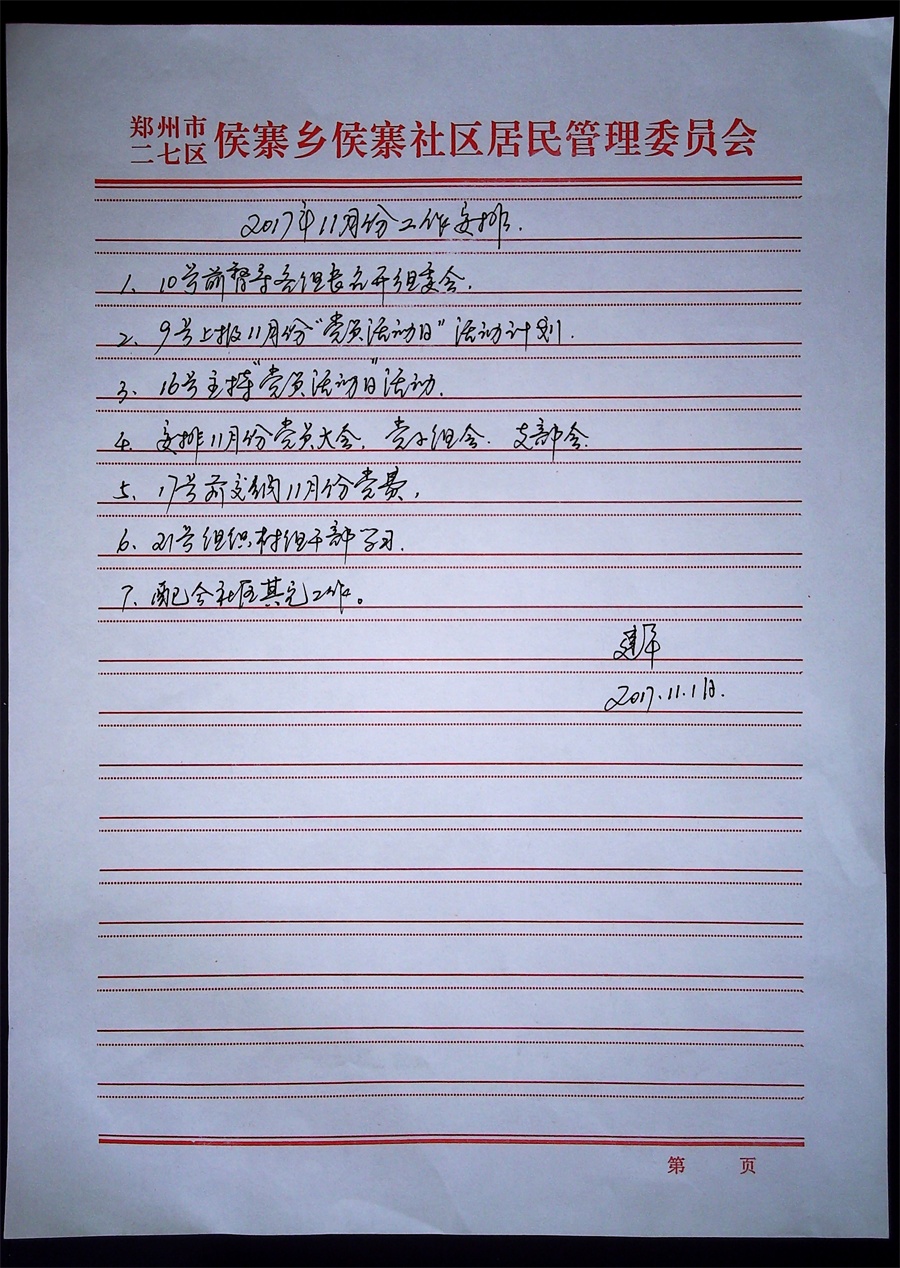 郑州市
二七区 侯寨乡侯寨社区居民管理委员会
2017年11月份工作安排.
1、10号前督导各组长召开组委会.
2、9号上报11月份“党员活动日”活动计划.
3、16号主持“党员活动日”活动.
4、安排11月份党员大会、党小组会、支部会.
5、17号前交纳11月份党费.
6、21号组织村组干部学习.
7、配合社区其它工作。
建军
2017.11.1日.
第 页